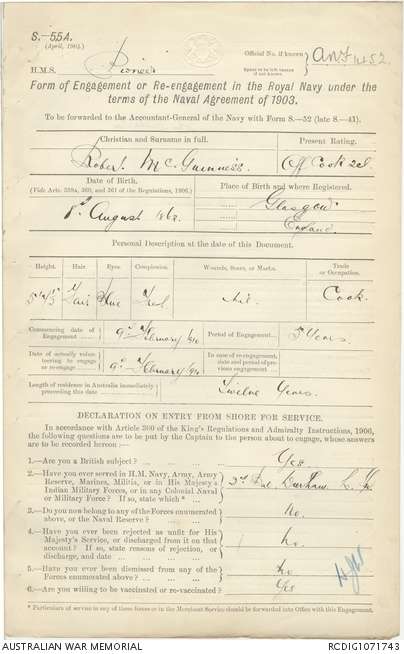 S.—55A.
(April, 1905.)
Official No. (if known)
Space to be left vacant if not known.
ANF 1452
H.M.S. Pioneer
Form of Engagement or Re-engagement in the Royal Navy under the
terms of the Naval Agreement of 1903.
To be forwarded to the Accountant-General of the Navy with Form S.—52 (late S.—41).
Christian and Surname in full. Present Rating.
Robert McGuinness Off Cook 2cl
Date of Birth.
(Vide Arts. 359a, 360, and 361 of the Regulations, 1906.)
Place of Birth and where Registered.
August Glasgow
England
Personal Description at the date of this Document.
Height. Hair Eyes Complexion. Wounds, Scars, or Marks. Trade or Occupation.
Fair Blue nil. Cook.
Commencing date of Engagement 9th February Period of Engagement 5 Years
Date of actually volunteering to engage or re-engage 9th February In case of re-engagement, date and period of previous engagement
Length of residence in Australia immediately preceding this date Twelve Years.
DECLARATION ON ENTRY FROM SHORE FOR SERVICE.
In accordance with Article 360 of the King's Regulations and Admiralty Instructions, 1906,
the following questions are to be put by the Captain to the person about to engage, whose answers
are to be recorded herein:—
1.—Are you a British subject? Yes.
2.—Have you ever served in H.M. Navy, Army, Army
Reserve, Marines, Militia, or in His Majesty's
Indian Military Forces, or in any Colonial Naval
or Military Force? If so, state which * Durham L. I.
3.—Do you now belong to any of the Forces enumerated
above, or the Naval Reserve? No.
4.—Have you ever been rejected as unfit for His
Majesty's Service, or discharged from it on that
account? If so, state reasons of rejection, or
discharge, and date No.
5.—Have you ever been dismissed from any of the
Forces enumerated above? No
6.—Are you willing to be vaccinated or re-vaccinated? Yes
* Particulars of service in any of these forces or in the Merchant Service should be forwarded into Office with this Engagement.
AUSTRALIAN WAR MEMORIAL RCDIG1071743